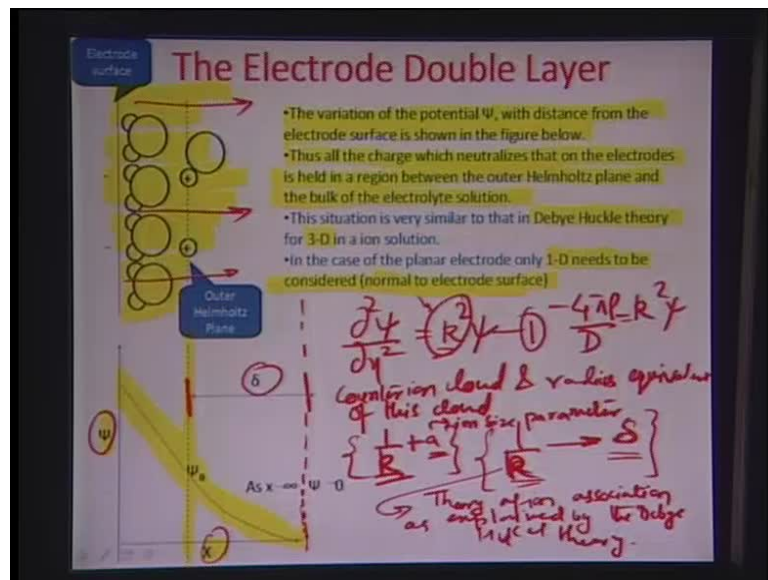 Electrode
surface
The Electrode Double Layer
•The variation of the potential Ψ, with distance from the
electrode surface is shown in the figure below.
•Thus all the charge which neutralizes that on the electrodes
is held in a region between the outer Helmholtz plane and
the bulk of the electrolyte solution.
•This situation is very similar to that in Debye Huckle theory
for 3-D in a ion solution.
•In the case of the planar electrode only 1-D needs to be
considered (normal to electrode surface)
Outer
Helmholtz
Plane
Counter ion cloud & radius equivalent
of this cloud
ion size parameter
{1/k + a} {1/k → δ}
Theory of ion association
as explained by the Debye
theory.
δ
Ψ
Ψa
As x→∞ Ψ→0
X